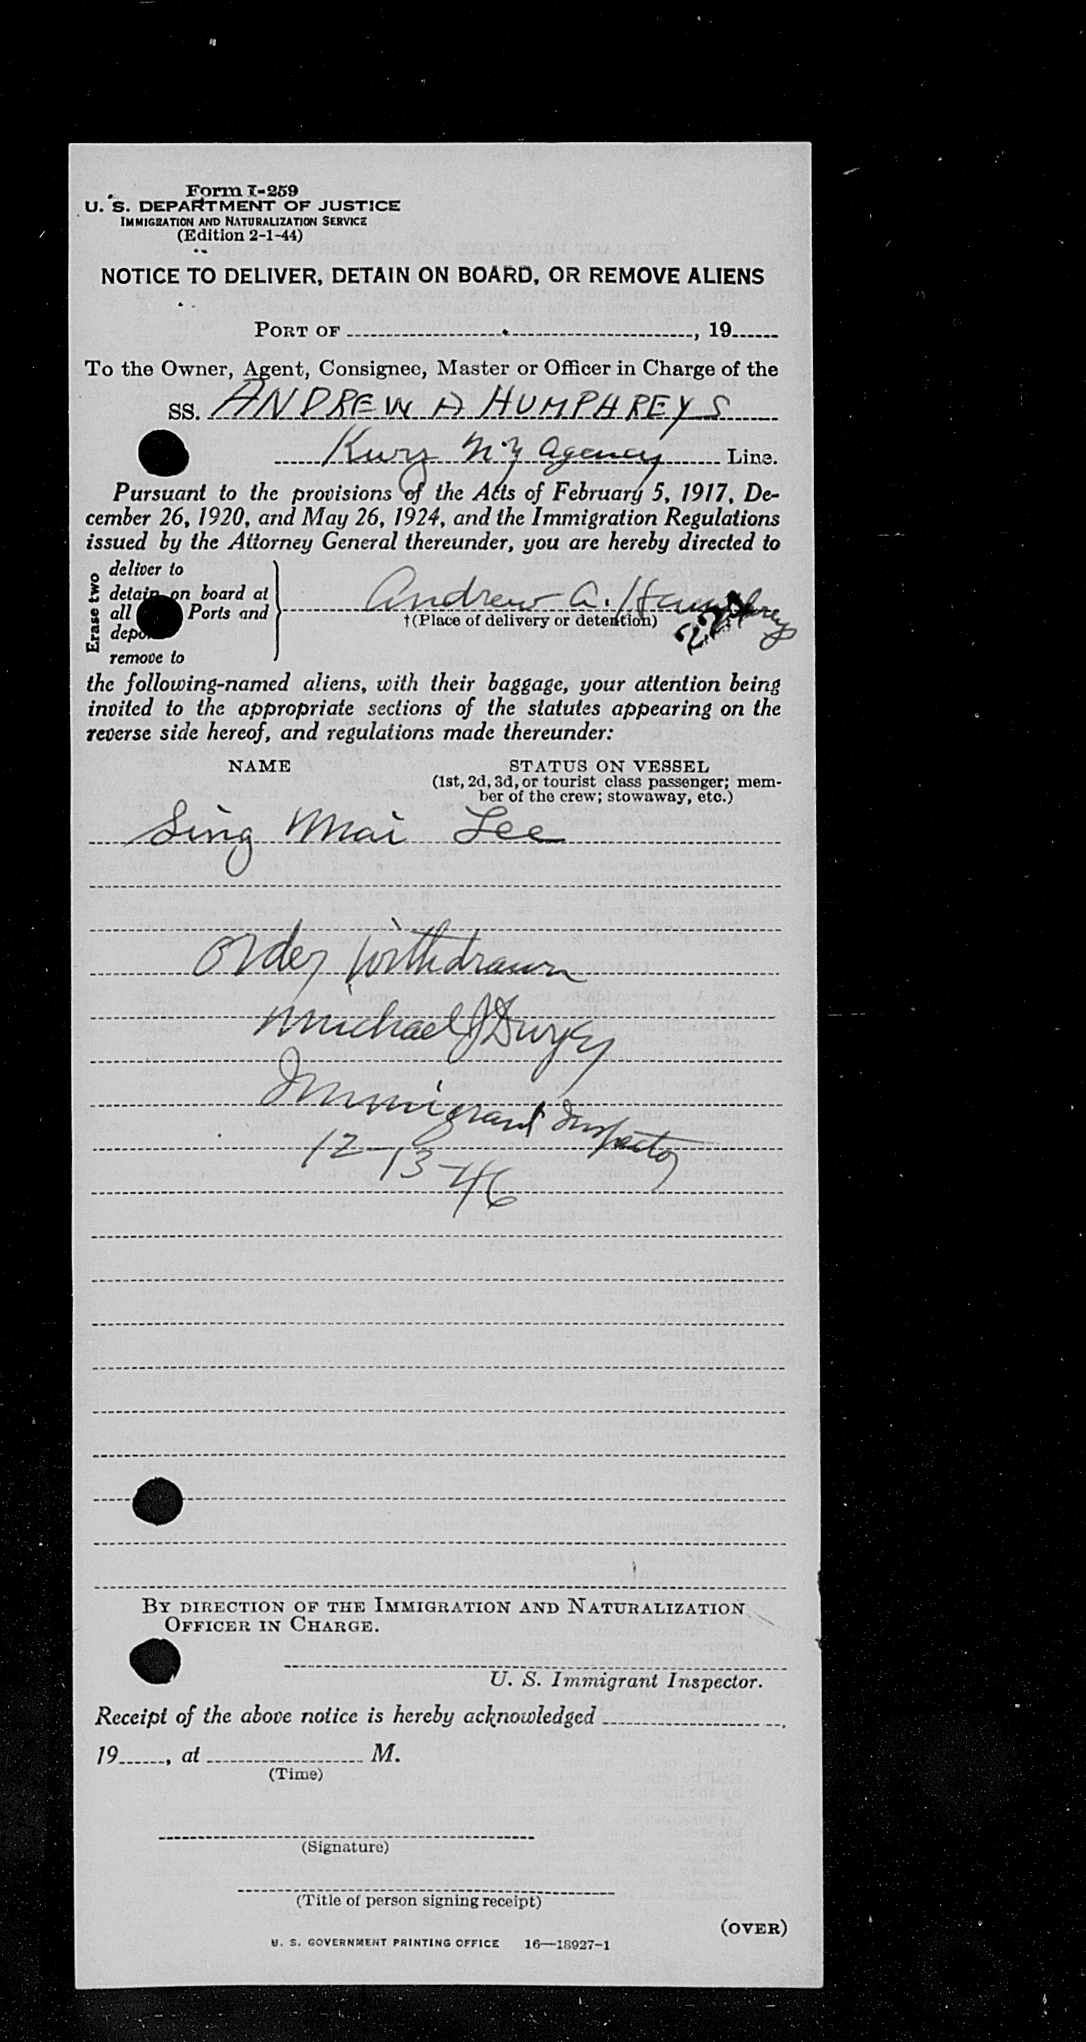 Form I-259
U. S. DEPARTMENT OF JUSTICE
IMMIGRATION AND NATURALIZATION SERVICE
(Edition 2-1-44)
NOTICE TO DELIVER, DETAIN ON BOARD, OR REMOVE ALIENS
PORT OF , 19
To the Owner, Agent, Consignee, Master or Officer in Charge of the
SS. ANDREW A HUMPHREYS
Kurz N.Y Agency Line.
Pursuant to the provisions of the Acts of February 5, 1917, De-
cember 26, 1920, and May 26, 1924, and the Immigration Regulations
issued by the Attorney General thereunder, you are hereby directed to
Erase two
deliver to
detain on board at
all Ports and
remove to
Andrew A. Humphreys
†(Place of delivery or detention)
the following-named aliens, with their baggage, your attention being
invited to the appropriate sections of the statutes appearing on the
reverse side hereof, and regulations made thereunder:
NAME STATUS ON VESSEL
(1st, 2d, 3d, or tourist class passenger; mem-
ber of the crew; stowaway, etc.)
Sing Mai Lee
Order Withdrawn
Michael J
Immigrant Inspector
12-13-46
BY DIRECTION OF THE IMMIGRATION AND NATURALIZATION
OFFICER IN CHARGE.
U. S. Immigrant Inspector.
Receipt of the above notice is hereby acknowledged ,
19 , at M.
(Time)
(Signature)
(Title of person signing receipt)
(OVER)
U. S. GOVERNMENT PRINTING OFFICE 16—18927-1